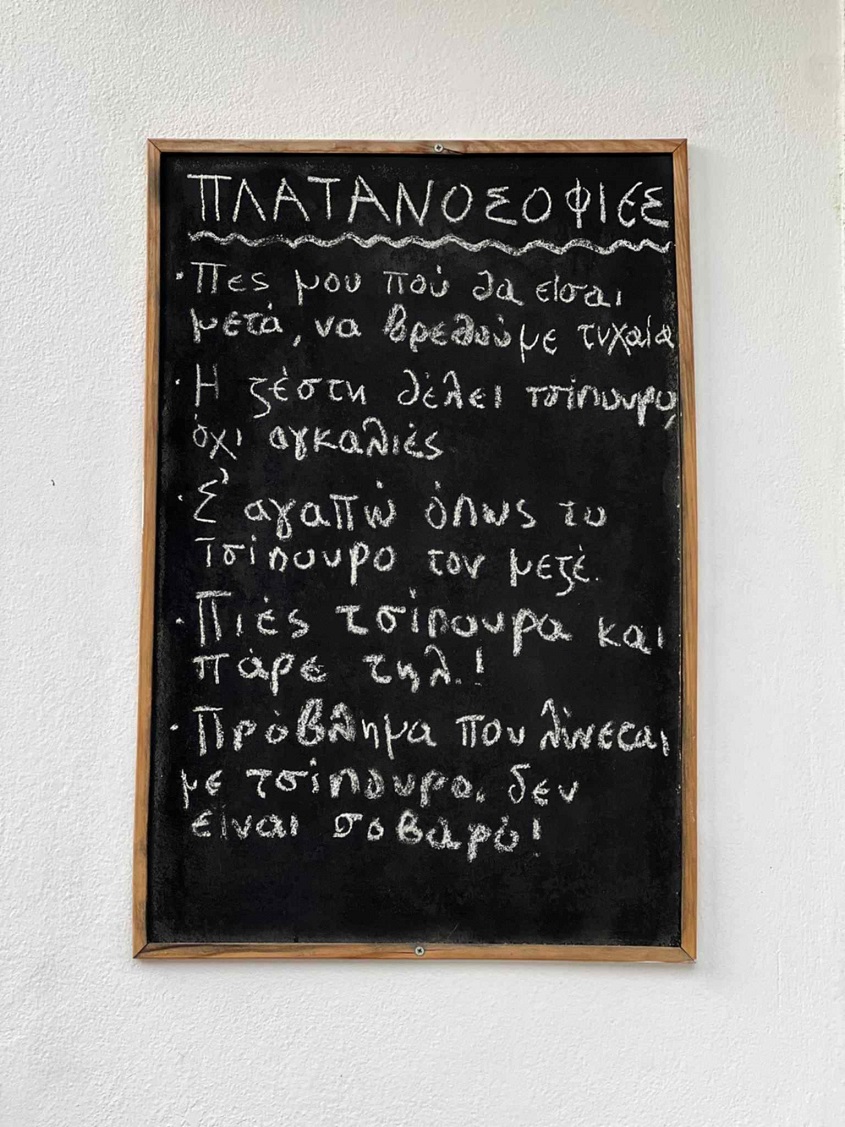 ΠΛΑΤΑΝΟΣΟΦΙΕΣ
·Πες μου πού θα είσαι
μετά, να βρεθούμε τυχαία
·Η ζέστη θέλει τσίπουρο,
όχι αγκαλιές
·Σ' αγαπώ όπως το
τσίπουρο τον μεζέ.
·Πιές τσίπουρα και
πάρε τηλ.!
·Πρόβλημα που λύνεται
με τσίπουρο, δεν
είναι σοβαρό!